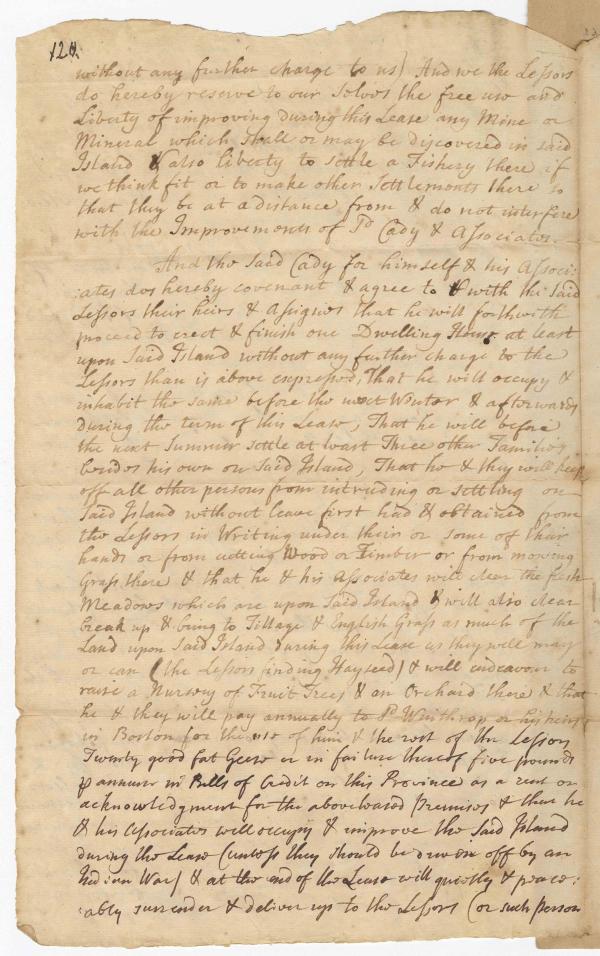 120.
without any further charge to us) And we the Lessors
do hereby reserve to our Selves the free use and
Liberty of improving during this Lease any Mine or
Mineral which shall or may be discovered in said
Island & also liberty to settle a Fishery there if
we think fit or to make other Settlements there so
that they be at a distance from & do not interfere
with the Improvements of Sd Cady & Associates.
And the Said Cady for himself & his Associ:
:ates dos hereby covenant & agree to & with the Said
Lessors their heirs & Assignes that he will forthwith
proceed to erect & finish one Dwelling House at least
upon Said Island without any further charge to the
Lessors than is above expressed, That he will occupy &
inhabit the same before the next Winter & afterwards
during the term of this Lease, That he will before
the next Summer settle at least Three other Families
besides his own on Said Island, That he & they will keep
off all other persons from intruding or settling on
Said Island without leave first had & obtained from
the Lessors in Writing under their or some of their
hands or from cutting Wood or Timber or from mowing
Grass there & that he & his Associates will clear the fresh
Meadows which are upon Said Island & will also clear
break up & bring to Tillage & English Grass as much of the
Land upon Said Island during this Lease as they will may
or can (the Lessors finding Hayseed) & will endeavour to
raise a Nursery of Fruit Trees & an Orchard there & that
he & they will pay annually to Sd Winthrop or his heirs
in Boston for the use of him & the rest of the Lessors
Twenty good fat Geese or in failure thereof five pounds
⅌ annum in Bills of Credit on this Province as a rent or
acknowledgment for the above Premises & that he
& his Associates will occupy & improve the Said Island
during the Lease (unless they should be driven off by an
Indian War) & at the end of the Lease will quietly & peace:
:ably surrender & deliver up to the Lessors (or such person